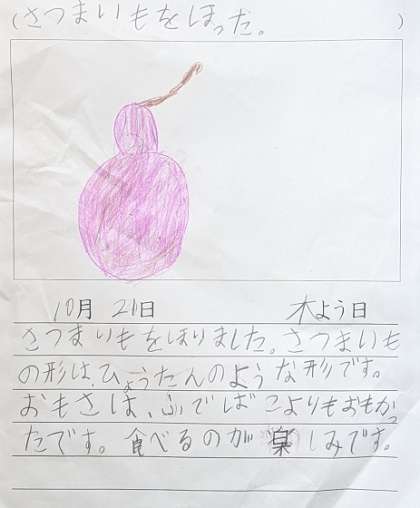 (さつまいもをほった。)
10月 21日 木よう日
さつまいもをほりました。さつまいも
の形は、ひょうたんのような形です。
おもさは、ふでばこよりもおもかっ
たです。食べるのが楽しみです。